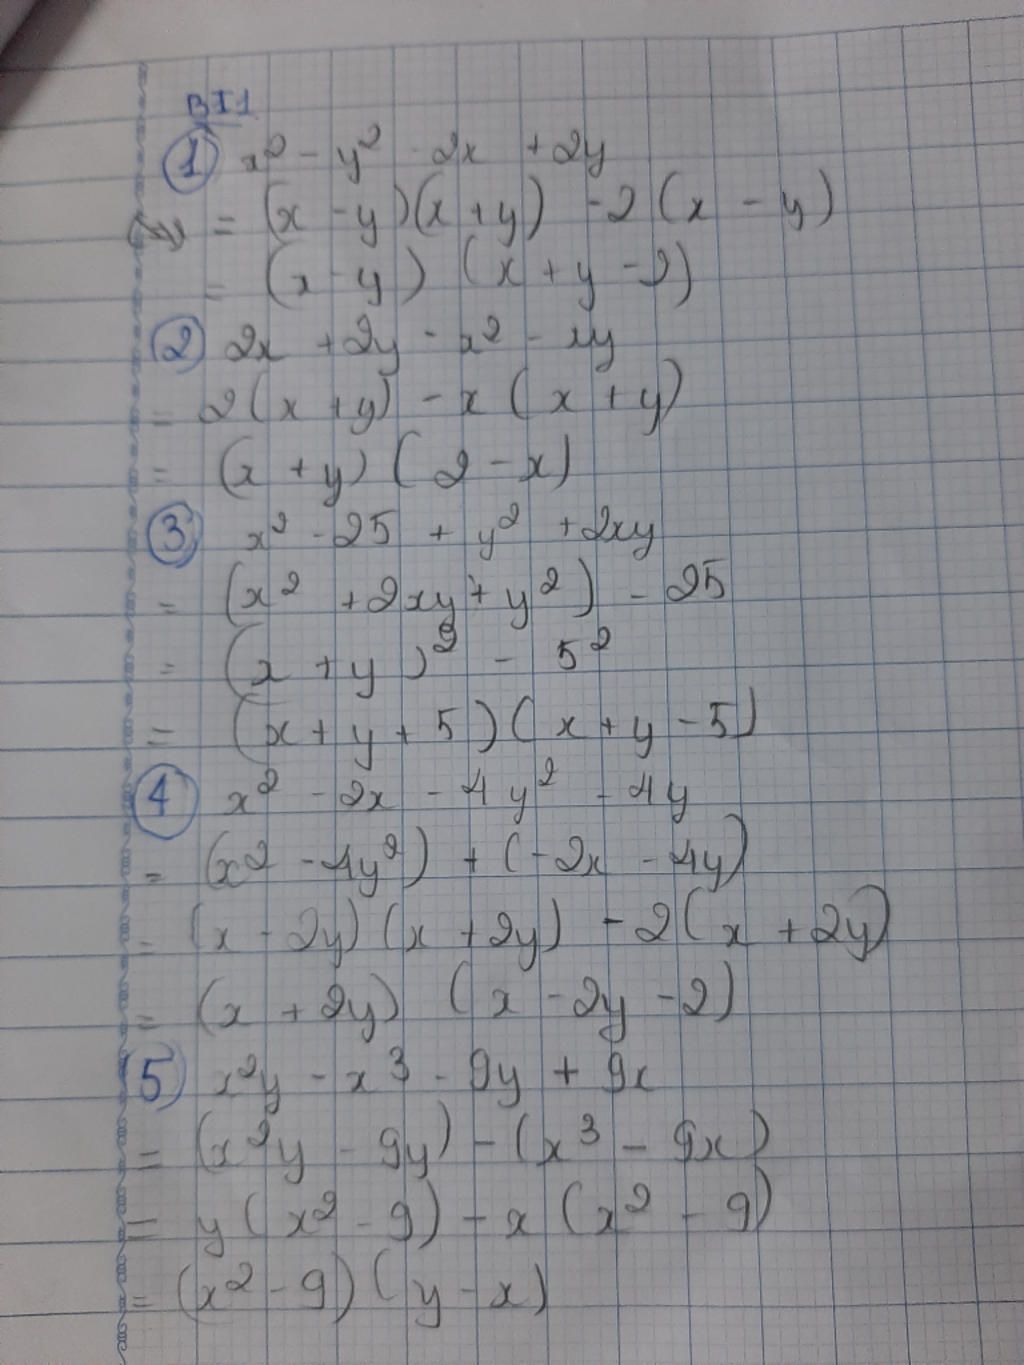 BT1
① x² - y² - 2x + 2y
= (x - y)(x + y) - 2(x - y)
= (x - y) (x + y - 2)
② 2x + 2y - x² - xy
= 2(x + y) - x(x + y)
= (x + y)(2 - x)
③ x² - 25 + y² + 2xy
= (x² + 2xy + y²) - 25
= (x + y)² - 5²
= (x + y + 5)(x + y - 5)
④ x² - 2x - 4y² - 4y
= (x² - 4y²) + (-2x - 4y)
= (x - 2y)(x + 2y) - 2(x + 2y)
= (x + 2y) (x - 2y - 2)
⑤ x²y - x³ - 9y + 9x
= (x²y - 9y) - (x³ - 9x)
= y(x² - 9) - x(x² - 9)
= (x² - 9)(y - x)